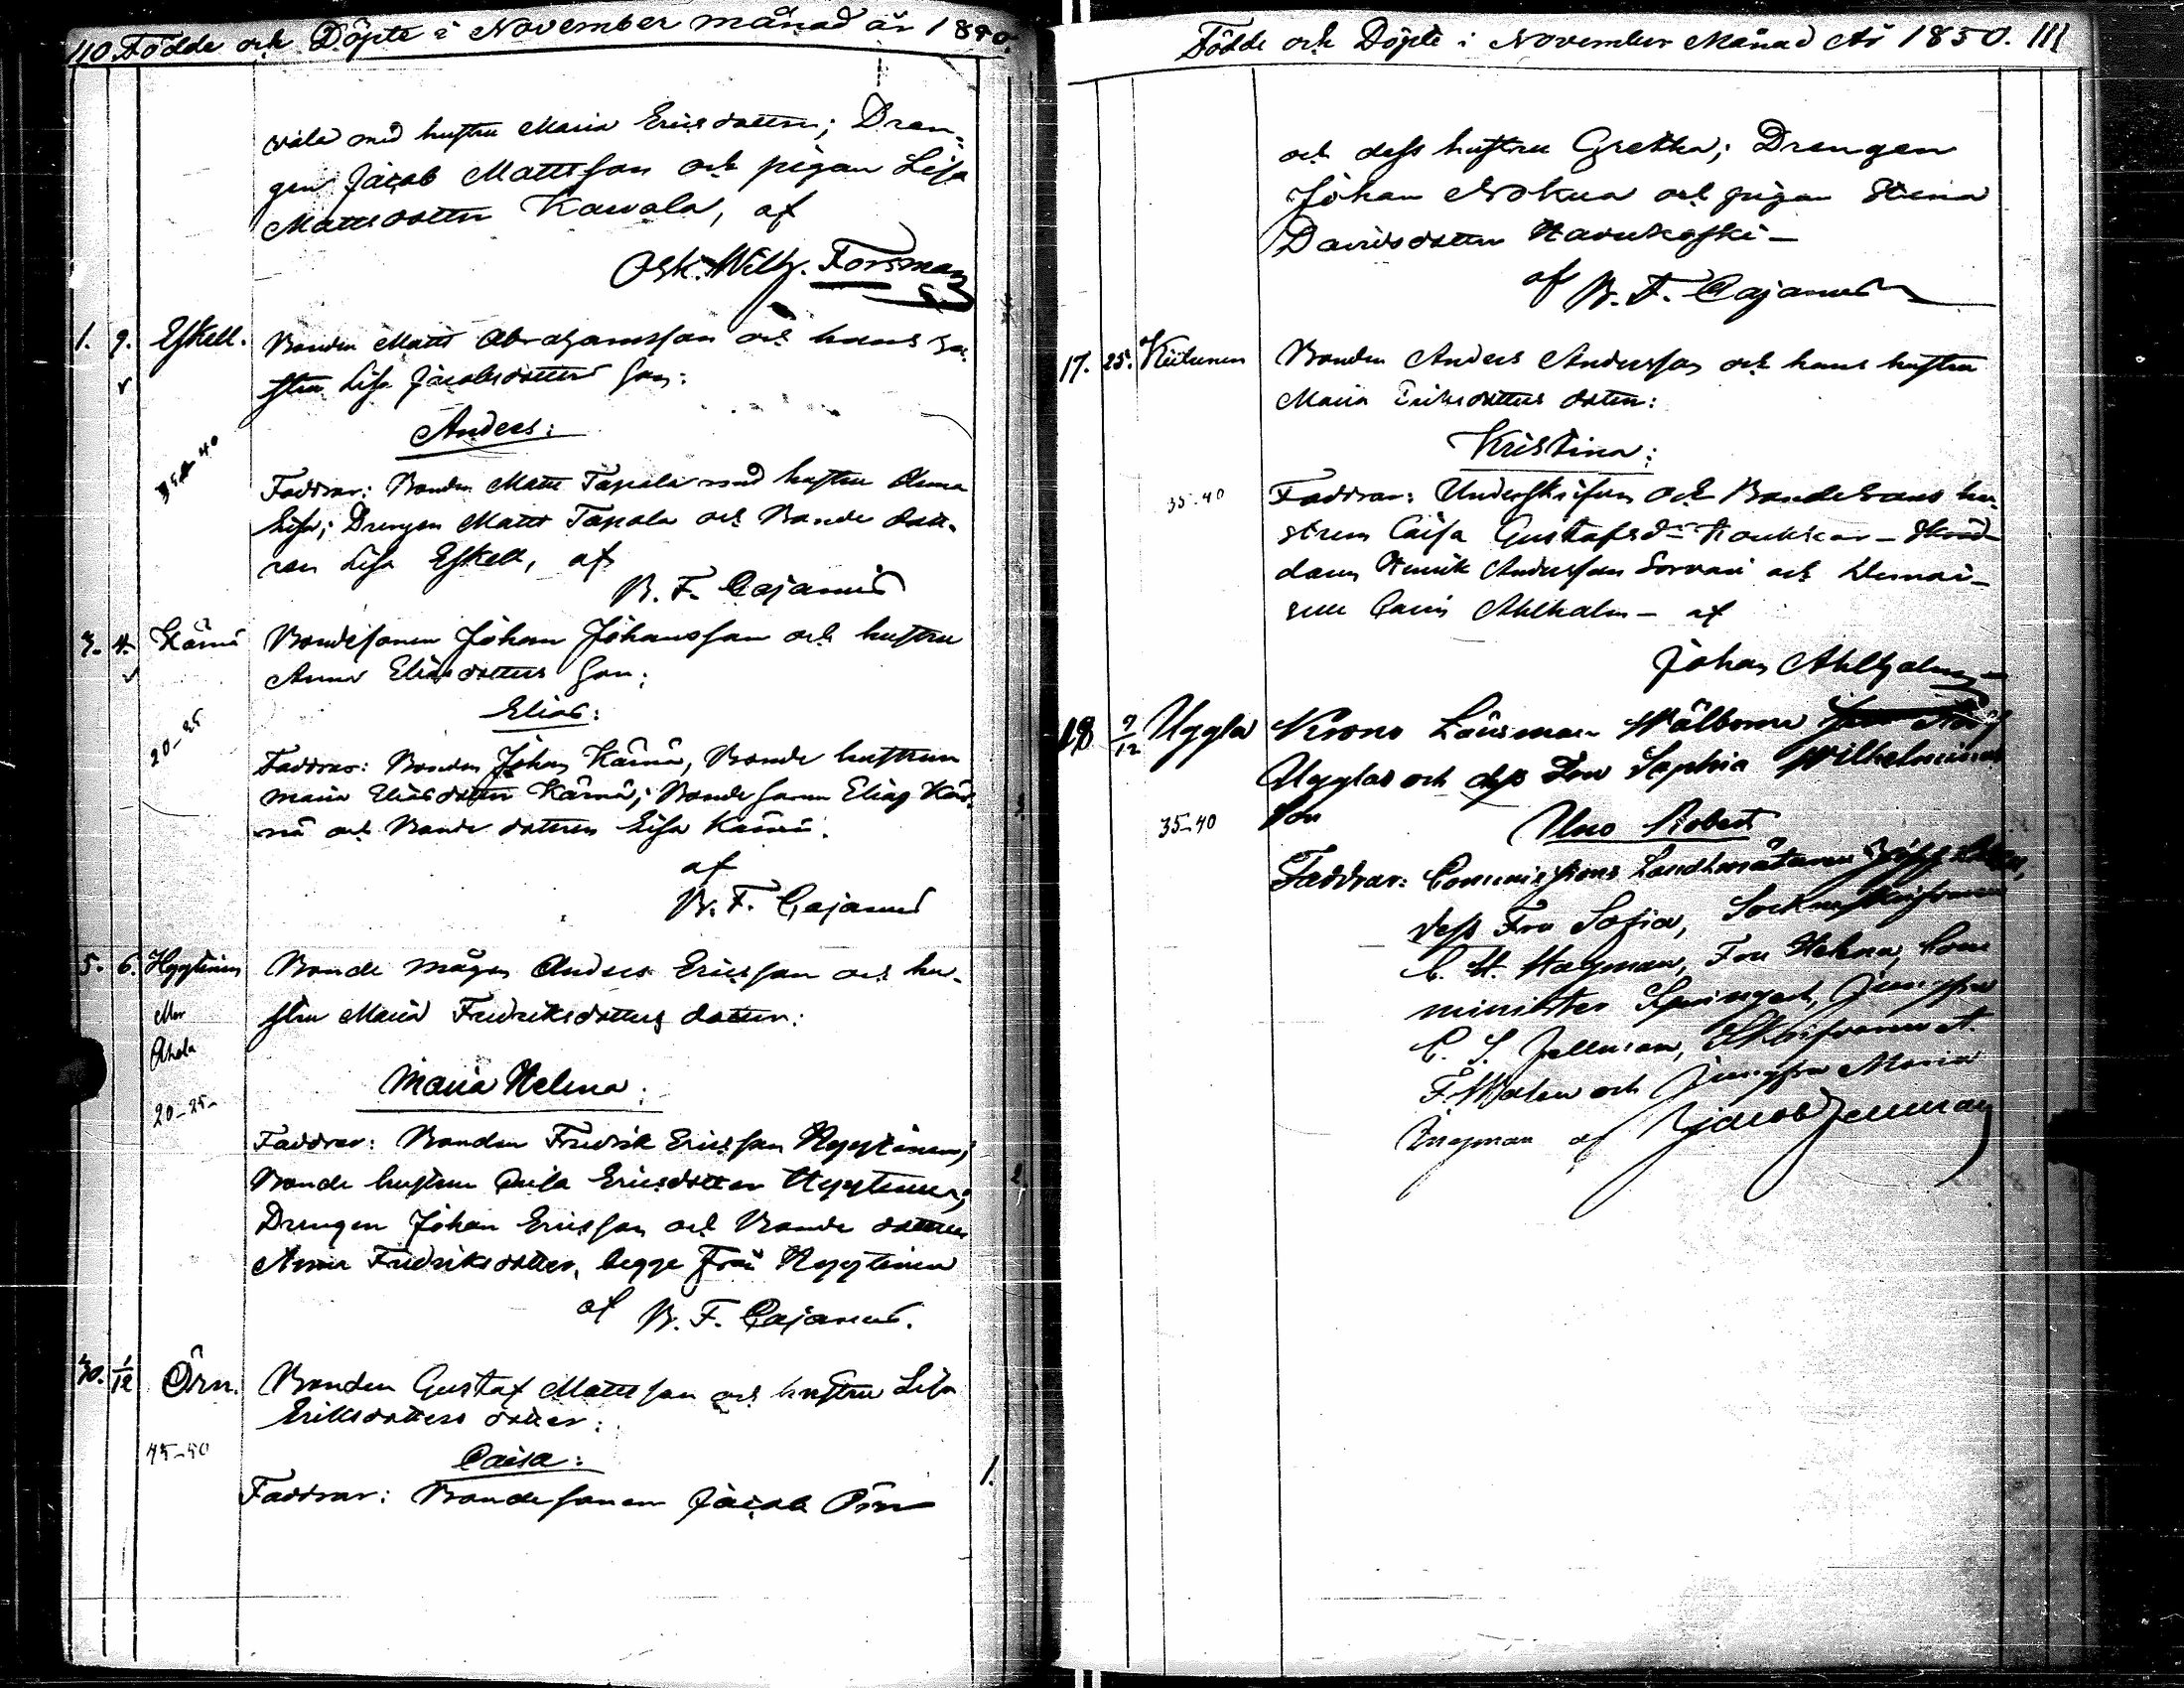 110 Födde och Döpte i November månad år 1850.
vala med hustru Maria Ericsdotter; Dren-
gen Jacob Mattsson och pigan Lisa
Mattsdotter Kawala, af
Osk. Wilh. Forsman
1. 9. Eskell. Bonden Matts Abrahamsson och hans hu-
stru Lisa Jacobsdotters son:
Anders:
Faddrar: Bonden Matts Tapala med hustru Anna
Lisa; Drengen Matts Tapala och Bonde dott-
ren Lisa Eskell, af
B. F. Cajanus
3. 4. Kärnä Bondesonen Johan Johansson och hustru
Anna Eliasdotters son;
Elias:
20-25
Faddrar: Bonden Johan Kärnä, Bonde hustrun
Maria Eliasdotter Kärnä; Bonde sonen Elias Kär-
nä och Bonde dottren Lisa Kärnä.
af
B. F. Cajanus
5. 6. Hyytinen Bonde mågen Anders Ericsson och hu-
stru Maria Fredriksdotters dotter:
Maria Helena:
20-25-
Faddrar: Bonden Fredrik Ericsson Hyytinen;
Bonde hustrun Caisa Ericsdotter Hyytinen;
Drengen Johan Ericsson och Bonde dottren
Anna Fredriksdotter, begge från Hyytinen
af B. F. Cajanus.
30. 1/12 Örn. Bonden Gustaf Mattsson och hustru Lisa
Eriksdotters dotter:
45-50
Caisa:
1.
Faddrar: Bondesonen Jacob Örn
Födde och Döpte i November Månad År 1850. 111
och dess hustru Gretha; Drengen
Johan Nokua och pigan Stina
Davidsdotter Haukoski-
af B. F. Cajanus
17. 25. Kiitunen Bonden Anders Andersson och hans hustru
Maria Eriksdotters dotter:
Kristina:
35-40
Faddrar: Underskrifven och Bonde hu-
strun Caisa Gustafsd:
Henrik Andersson Sorvari och
Ahlholm- af
Johan Ahlholm
18 9/12 Uggla Krono Länsman Wälborne
Ugglas och dess Fru Sophia Wilhelminas
son
35-40
Uno Robert
Faddrar: Commissions Landtmätaren
dess Fru Sofia,
C. H. Hagman, Fru Helena, Com-
minister Jungfru
C. S. Jellman, Skrifvaren
F. och Jungfru Maria
Ingman af Jacob Jellman